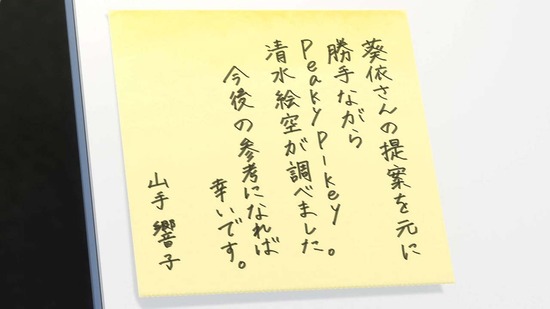 葵依さんの提案を元に
勝手ながら
Peaky P-key
清水絵空が調べました。
今後の参考になれば
幸いです。
山手響子